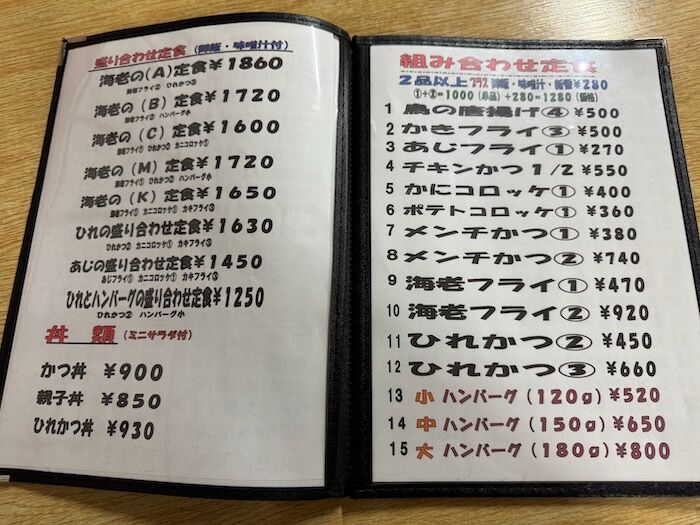 盛り合わせ定食 (御飯・味噌汁付)
海老の(A)定食¥1860
海老フライ② ひれかつ②
海老の(B)定食¥1720
海老フライ② ハンバーグ小
海老の(C)定食¥1600
海老フライ① ひれかつ② カニコロッケ①
海老の(M)定食¥1720
海老フライ① ひれかつ② ハンバーグ小
海老の(K)定食¥1650
海老フライ① カニコロッケ① カキフライ③
ひれの盛り合わせ定食¥1630
ひれかつ② カニコロッケ① カキフライ③
あじの盛り合わせ定食¥1450
あじフライ① カニコロッケ① カキフライ③
ひれとハンバーグの盛り合わせ定食¥1250
ひれかつ② ハンバーグ小
丼 類 (ミニサラダ付)
かつ丼 ¥900
親子丼 ¥850
ひれかつ丼 ¥930
組み合わせ定食
2品以上プラス御飯・味噌汁・新香¥280
①+②=1000(単品)+280=1280(価格)
1 鳥の唐揚げ④ ¥500
2 かきフライ③ ¥500
3 あじフライ① ¥270
4 チキンかつ1/2 ¥550
5 かにコロッケ① ¥400
6 ポテトコロッケ① ¥360
7 メンチかつ① ¥380
8 メンチかつ② ¥740
9 海老フライ① ¥470
10 海老フライ② ¥920
11 ひれかつ② ¥450
12 ひれかつ③ ¥660
13 小 ハンバーグ(120g)¥520
14 中 ハンバーグ(150g)¥650
15 大 ハンバーグ(180g)¥800